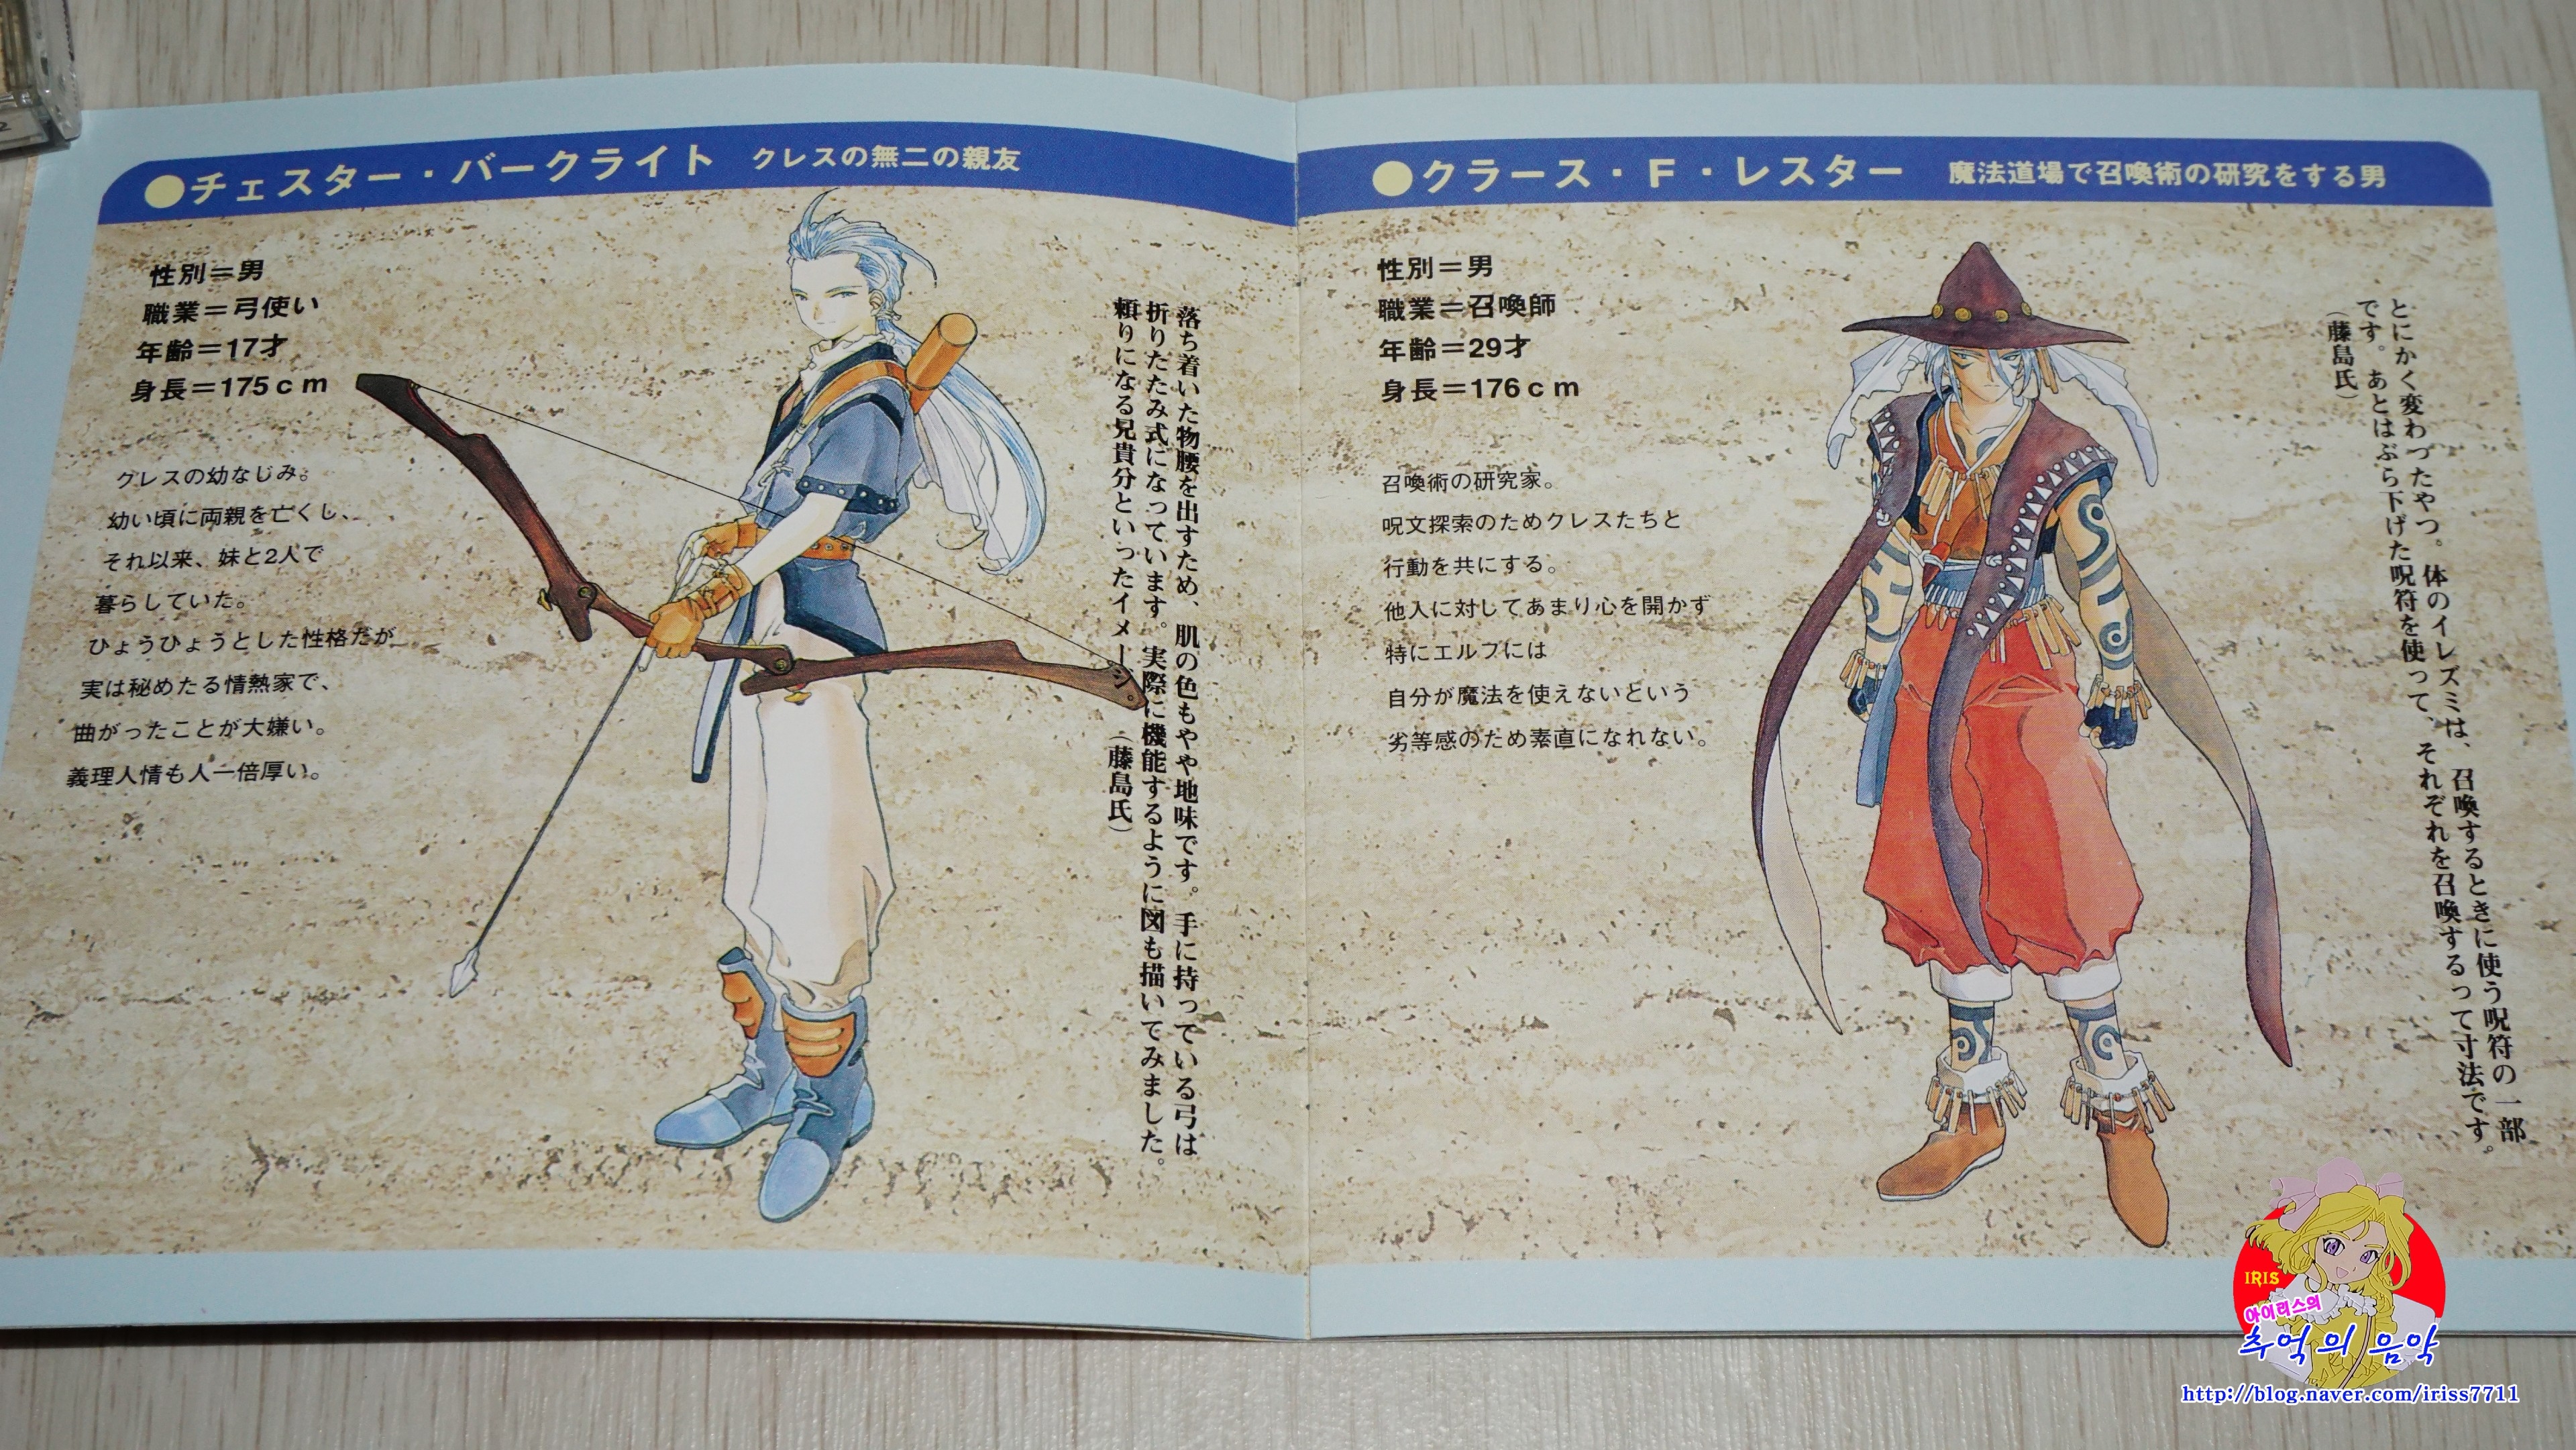 ●チェスター・バークライト クレスの無二の親友
性別＝男
職業＝弓使い
年齢＝17才
身長＝175cm
クレスの幼なじみ。
幼い頃に両親を亡くし、
それ以来、妹と2人で
暮らしていた。
ひょうひょうとした性格だが
実は秘めたる情熱家で、
曲がったことが大嫌い。
義理人情も人一倍厚い。
落ち着いた物腰を出すため、肌の色もやや地味です。手に持っている弓は
折りたたみ式になっています。実際に機能するように図も描いてみました。
頼りになる兄貴分といったイメージ。（藤島氏）
●クラース・F・レスター 魔法道場で召喚術の研究をする男
性別＝男
職業＝召喚師
年齢＝29才
身長＝176cm
召喚術の研究家。
呪文探索のためクレスたちと
行動を共にする。
他人に対してあまり心を開かず
特にエルフには
自分が魔法を使えないという
劣等感のため素直になれない。
とにかく変わったやつ。体のイレズミは、召喚するときに使う呪符の一部
です。あとはぶら下げた呪符を使って、それぞれを召喚するって寸法です。
（藤島氏）
IRIS
아이리스의
추억의 음악
http://blog.naver.com/iriss7711